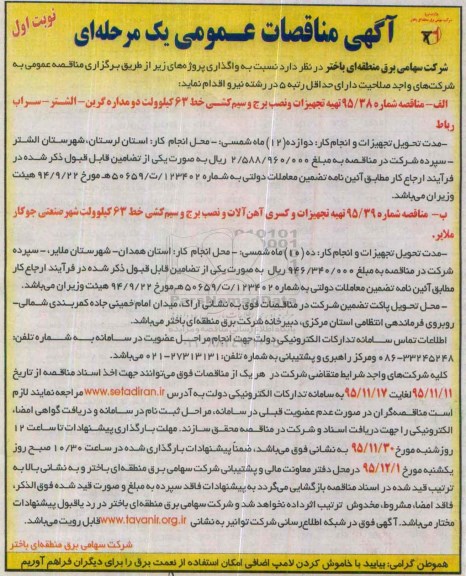 نوبت اول
آگهی مناقصات عمومی یک مرحله‌ای
شرکت سهامی برق منطقه‌ای باختر در نظر دارد نسبت به واگذاری پروژه‌های زیر از طریق برگزاری مناقصه عمومی به
شرکت‌های واجد صلاحیت دارای حداقل رتبه ۵ در رشته نیرو اقدام نماید:
الف- مناقصه شماره ۹۵/۳۸ تهیه تجهیزات و نصب برج و سیم‌کشی خط ۶۳ کیلوولت دو مداره گرین - الشتر - سراب
رباط
-مدت تحویل تجهیزات و انجام کار: دوازده(۱۲) ماه شمسی: - محل انجام کار: استان لرستان، شهرستان الشتر
- سپرده شرکت در مناقصه به مبلغ ۲/۵۸۸/۹۶۰/۰۰۰ ریال به صورت یکی از تضامین قابل قبول ذکر شده در
فرآیند ارجاع کار مطابق آئین نامه تضمین معاملات دولتی به شماره ۱۲۳۴۰۲/ت/۵۰۶۵۹هـ مورخ ۹۴/۹/۲۲ هیئت
وزیران می‌باشد.
ب- مناقصه شماره ۹۵/۳۹ تهیه تجهیزات و کسری آهن‌آلات و نصب برج و سیم‌کشی خط ۶۳ کیلوولت شهر صنعتی جوکار
ملایر.
-مدت تحویل تجهیزات و انجام کار: ده (۱۰) ماه شمسی: - محل انجام کار: استان همدان- شهرستان ملایر. - سپرده
شرکت در مناقصه به مبلغ ۹۴۶/۳۴۰/۰۰۰ ریال به صورت یکی از تضامین قابل قبول ذکر شده در فرآیند ارجاع کار
مطابق آئین نامه تضمین معاملات دولتی به شماره ۱۲۳۴۰۲/ت/۵۰۶۵۹هـ مورخ ۹۴/۹/۲۲ هیئت وزیران می‌باشد.
- محل تحویل پاکت تضمین شرکت در مناقصات فوق به نشانی اراک، میدان امام خمینی جاده کمربندی شمالی-
روبروی فرماندهی انتظامی استان مرکزی، دبیرخانه شرکت برق منطقه‌ای باختر می‌باشد.
اطلاعات تماس سامانه تدارکات الکترونیکی دولت جهت انجام مراحل عضویت در سامانه به شماره تلفن:
۰۸۶-۳۳۲۴۵۲۴۸ ومرکز راهبری و پشتیبانی به شماره تلفن: ۲۷۳۱۳۱۳۱-۰۲۱ می‌باشد.
کلیه شرکت‌های واجد شرایط متقاضی شرکت در هر یک از مناقصات فوق می‌توانند جهت اخذ اسناد مناقصه از تاریخ
۹۵/۱۱/۱۱ لغایت ۹۵/۱۱/۱۷ به سامانه تدارکات الکترونیکی دولت به آدرس www.setadiran.ir مراجعه نمایند لازم
است مناقصه‌گران در صورت عدم عضویت قبلی در سامانه، مراحل ثبت نام در سامانه و دریافت گواهی امضاء
الکترونیکی را جهت دریافت اسناد و شرکت در مناقصه محقق سازند. مهلت بارگذاری پیشنهادات تا ساعت ۱۲
روز شنبه مورخ ۹۵/۱۱/۳۰ به نشانی فوق می‌باشد، ضمناً پیشنهادات بارگذاری شده در ساعت ۱۰/۳۰ صبح روز
یکشنبه مورخ ۹۵/۱۲/۱ در محل دفتر معاونت مالی و پشتیبانی شرکت سهامی برق منطقه‌ای باختر و به نشانی بالا به
ترتیب قید شده در اسناد مناقصه بازگشایی می‌گردد به پیشنهادات فاقد سپرده به مبلغ و صورت قید شده فوق الذکر،
فاقد امضا، مشروط، مخدوش ترتیب اثر داده نخواهد شد و شرکت سهامی برق منطقه‌ای باختر در رد یا قبول پیشنهادات
مختار می‌باشد. آگهی فوق در شبکه اطلاع‌رسانی شرکت توانیر به نشانی www.tavanir.org.ir قابل رویت می‌باشد.
شرکت سهامی برق منطقه‌ای باختر
هموطن گرامی: بیایید با خاموش کردن لامپ اضافی امکان استفاده از نعمت برق را برای دیگران فراهم آوریم